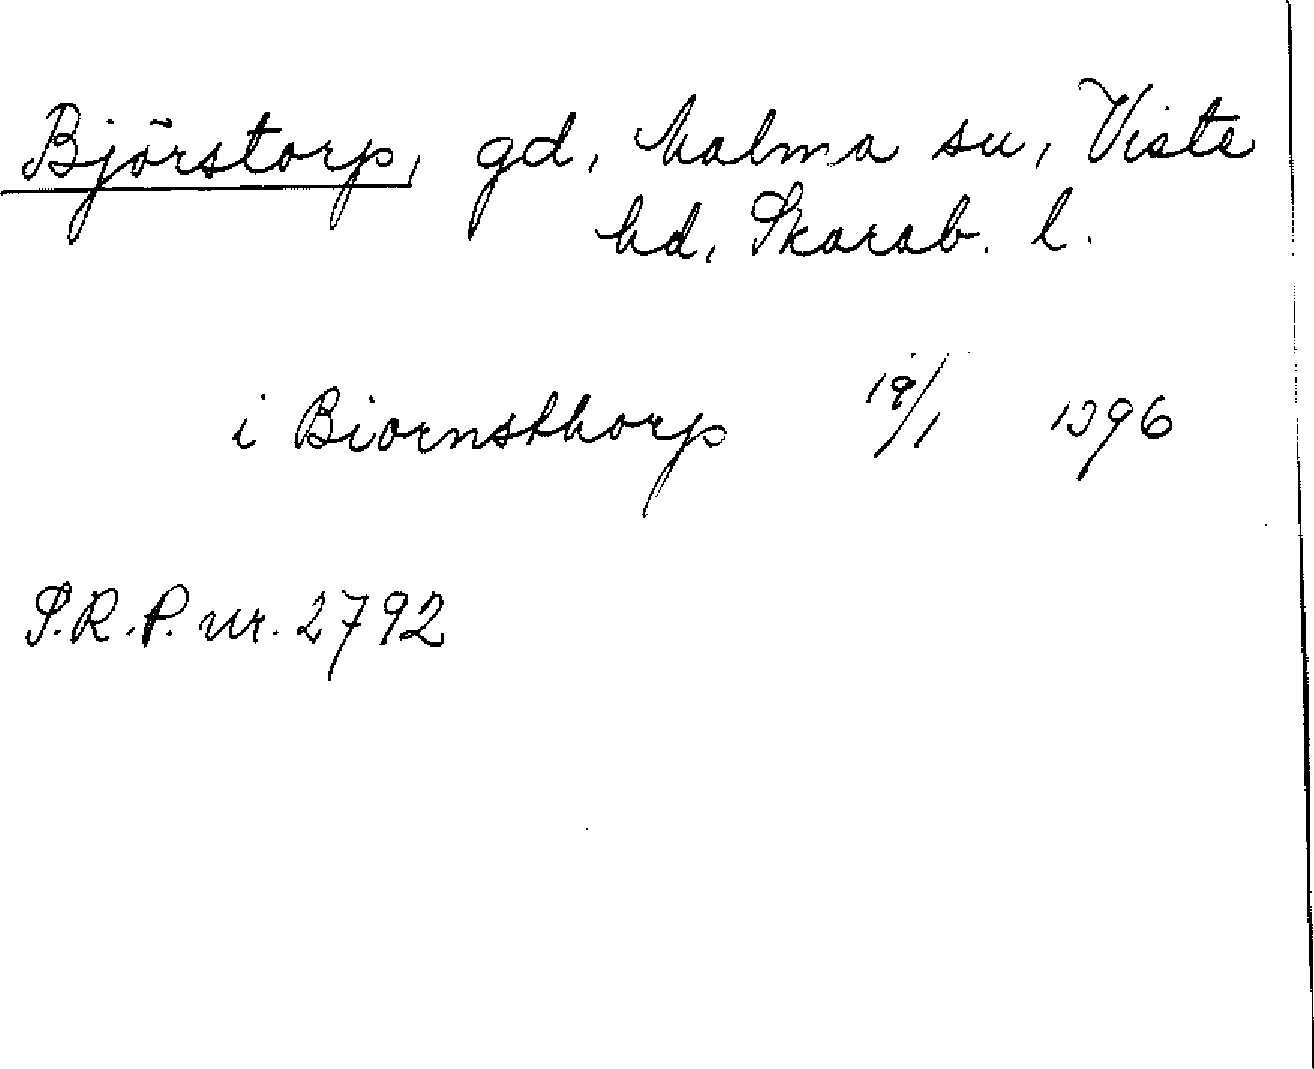 Björstorp, gd, Malma sn, Viste
hd, Skarab. l.
i Biornsthorp 19/1 1396
S.R.P. nr. 2792